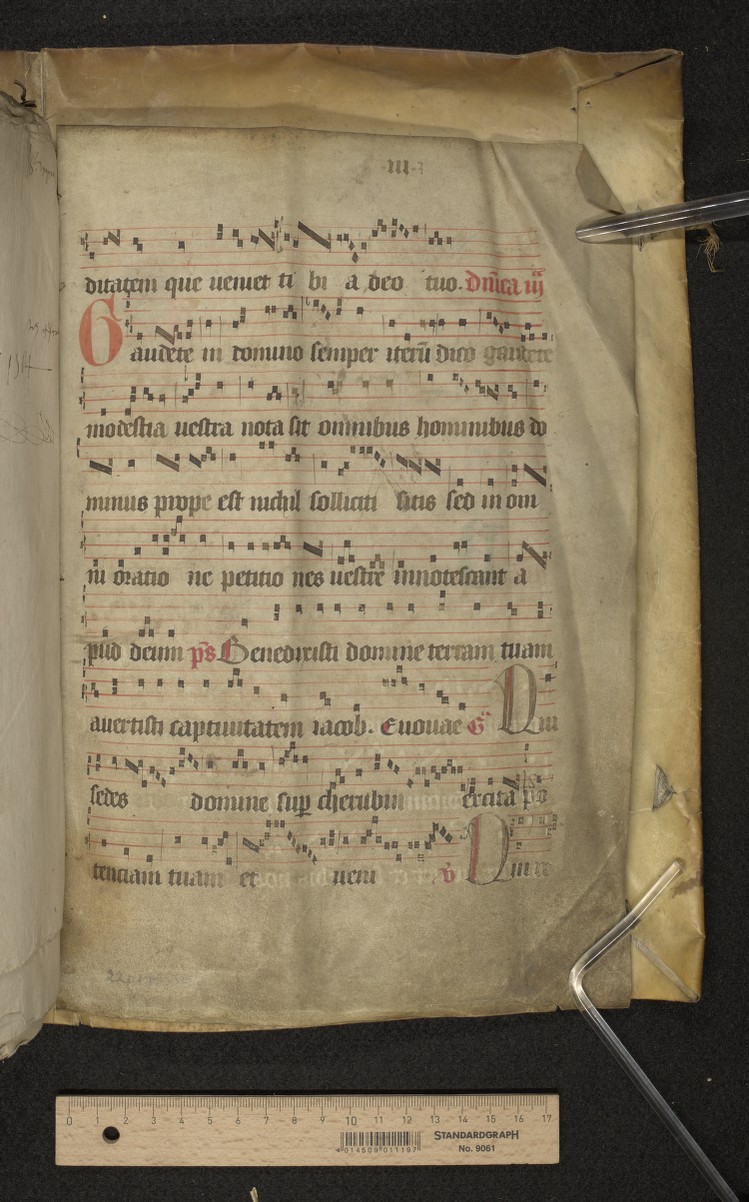 III
ditatem que veniet ti bi a deo tuo. Dnica iij
Gaudete in domino semper iterū dico gaudete
modestia vestra nota sit omnibus hominibus do
minus prope est nichil solliciti sitis sed in om
ni oratio ne petitio nes vestre innotescant a
pud deum ps Benedixisti domine terram tuam
avertisti captivitatem iacob. Euouae Gͣ Qui
sedes domine sup cherubin excita po
tenciam tuam et veni v̄ Qui re
1514
0 1 2 3 4 5 6 7 8 9 10 11 12 13 14 15 16 17
4 014509 011197
STANDARDGRAPH
No. 9061